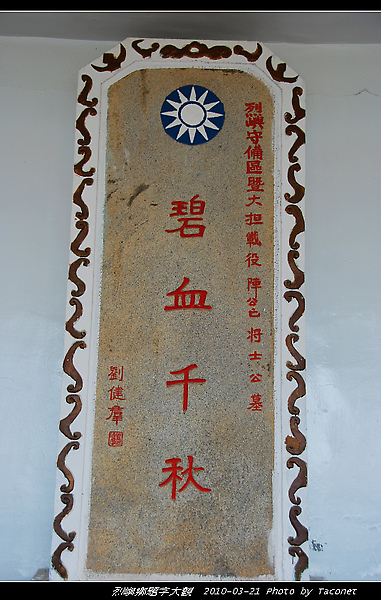 烈嶼守備區暨大担戰役陣亡将士公墓
碧血千秋
劉健羣
烈嶼鄉題字大觀 2010-03-21 Photo by Taconet